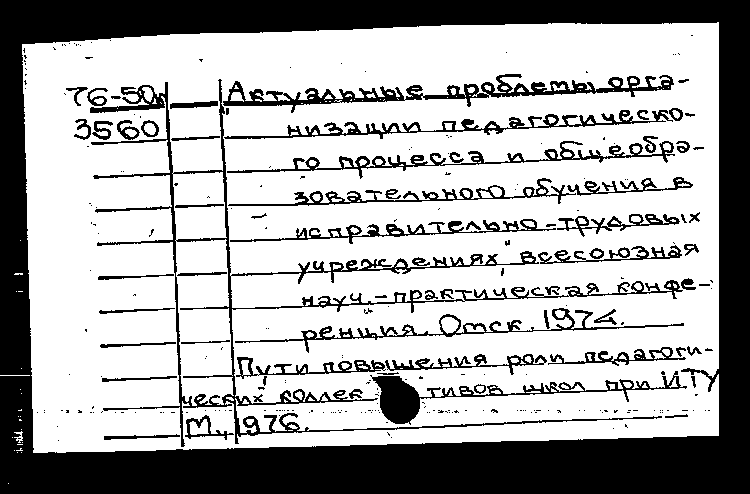 76-50к "Актуальные проблемы орга-
3560 низации педагогическо-
го процесса и общеобра-
зовательного обучения в
исправительно-трудовых
учреждениях", всесоюзная
науч.-практическая конфе-
ренция. Омск. 1974.
Пути повышения роли педагоги-
ческих коллективов школ при ИТУ
М., 1976.